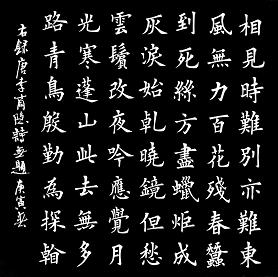 相見時難別亦難東
風無力百花殘春蠶
到死絲方盡蠟炬成
灰淚始乾曉鏡但愁
雲鬢改夜吟應覺月
光寒蓬山此去無多
路青鳥殷勤為探翰
右録唐李商隱詩無題庚寅春